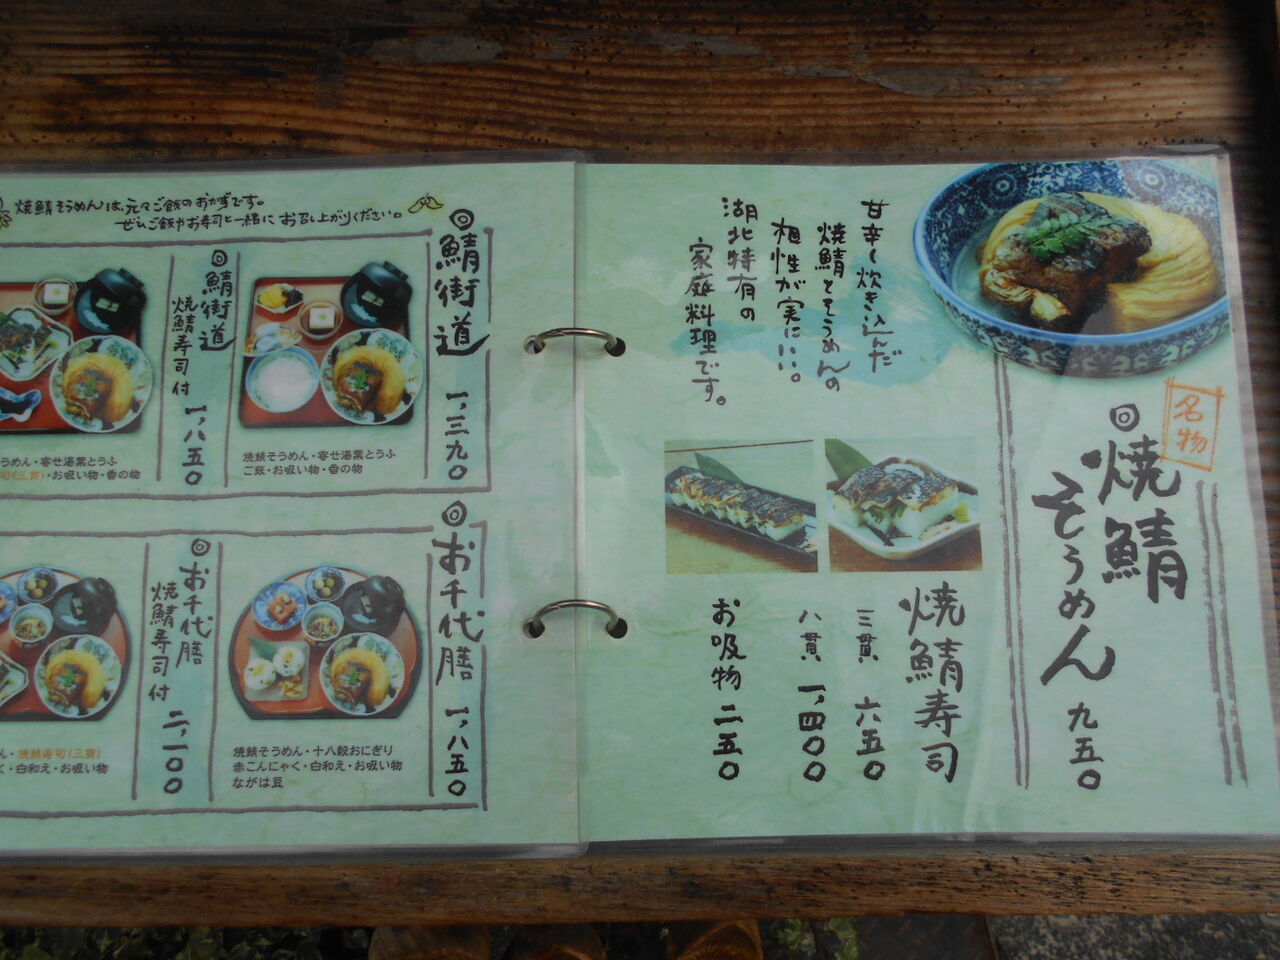 名物
焼鯖
そうめん 九五〇
甘辛く炊き込んだ
焼鯖とそうめんの
相性が実にいい。
湖北特有の
家庭料理です。
焼鯖寿司
三貫 六五〇
八貫 一,四〇〇
お吸物 二五〇
焼鯖そうめんは、元々ご飯のおかずです。
ぜひご飯やお寿司と一緒にお召し上がりください。
鯖街道 一,三九〇
焼鯖そうめん・寄せ湯葉とうふ
ご飯・お吸い物・香の物
鯖街道
焼鯖寿司付 一,八五〇
うめん・寄せ湯葉とうふ
司(三貫)・お吸い物・香の物
お千代膳 一,八五〇
焼鯖そうめん・十八穀おにぎり
赤こんにゃく・白和え・お吸い物
ながは豆
お千代膳
焼鯖寿司付 二,一〇〇
ん・焼鯖寿司(三貫)
く・白和え・お吸い物